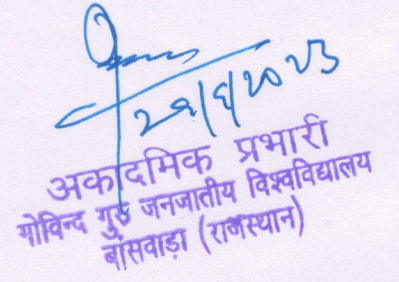 अकादमिक प्रभारी
गोविन्द गुरु जनजातीय विश्वविद्यालय
बांसवाड़ा (राजस्थान)